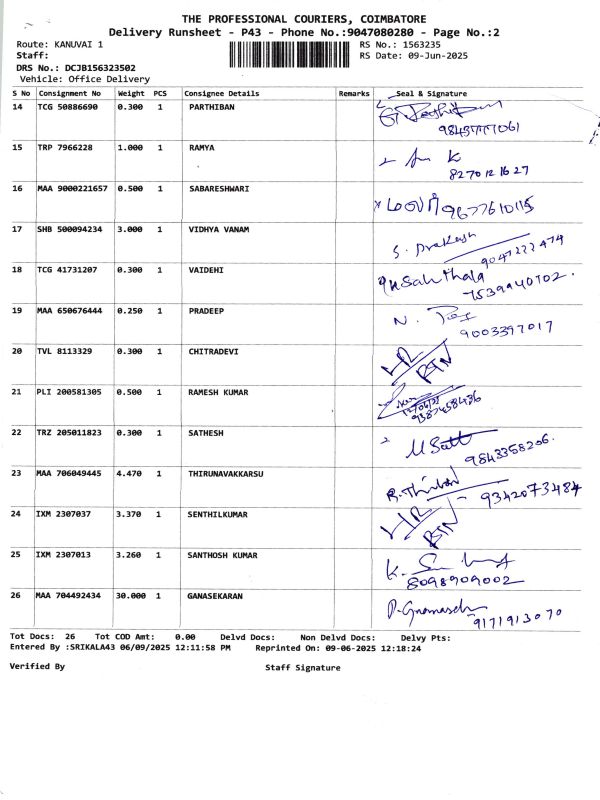 THE PROFESSIONAL COURIERS, COIMBATORE
Delivery Runsheet - P43 - Phone No.:9047080280 - Page No.:2
Route: KANUVAI 1 RS No.: 1563235
Staff: RS Date: 09-Jun-2025
DRS No.: DCJB156323502
Vehicle: Office Delivery
S No Consignment No Weight PCS Consignee Details Remarks Seal & Signature
14 TCG 50886690 0.300 1 PARTHIBAN
15 TRP 7966228 1.000 1 RAMYA K
8270121627
16 MAA 9000221657 0.500 1 SABARESHWARI 9677610115
17 SHB 500094234 3.000 1 VIDHYA VANAM S. Prakash
9047222474
18 TCG 41731207 0.300 1 VAIDEHI
7539940702.
19 MAA 650676444 0.250 1 PRADEEP N.
9003397017
20 TVL 8113329 0.300 1 CHITRADEVI
RTN
21 PLI 200581305 0.500 1 RAMESH KUMAR
9387458436
22 TRZ 205011823 0.300 1 SATHESH
9843358206.
23 MAA 706049445 4.470 1 THIRUNAVAKKARSU R.
9342073484
24 IXM 2307037 3.370 1 SENTHILKUMAR
RTN
25 IXM 2307013 3.260 1 SANTHOSH KUMAR K.
8098909002
26 MAA 704492434 30.000 1 GANASEKARAN
9171913070
Tot Docs: 26 Tot COD Amt: 0.00 Delvd Docs: Non Delvd Docs: Delvy Pts:
Entered By :SRIKALA43 06/09/2025 12:11:58 PM Reprinted On: 09-06-2025 12:18:24
Verified By Staff Signature